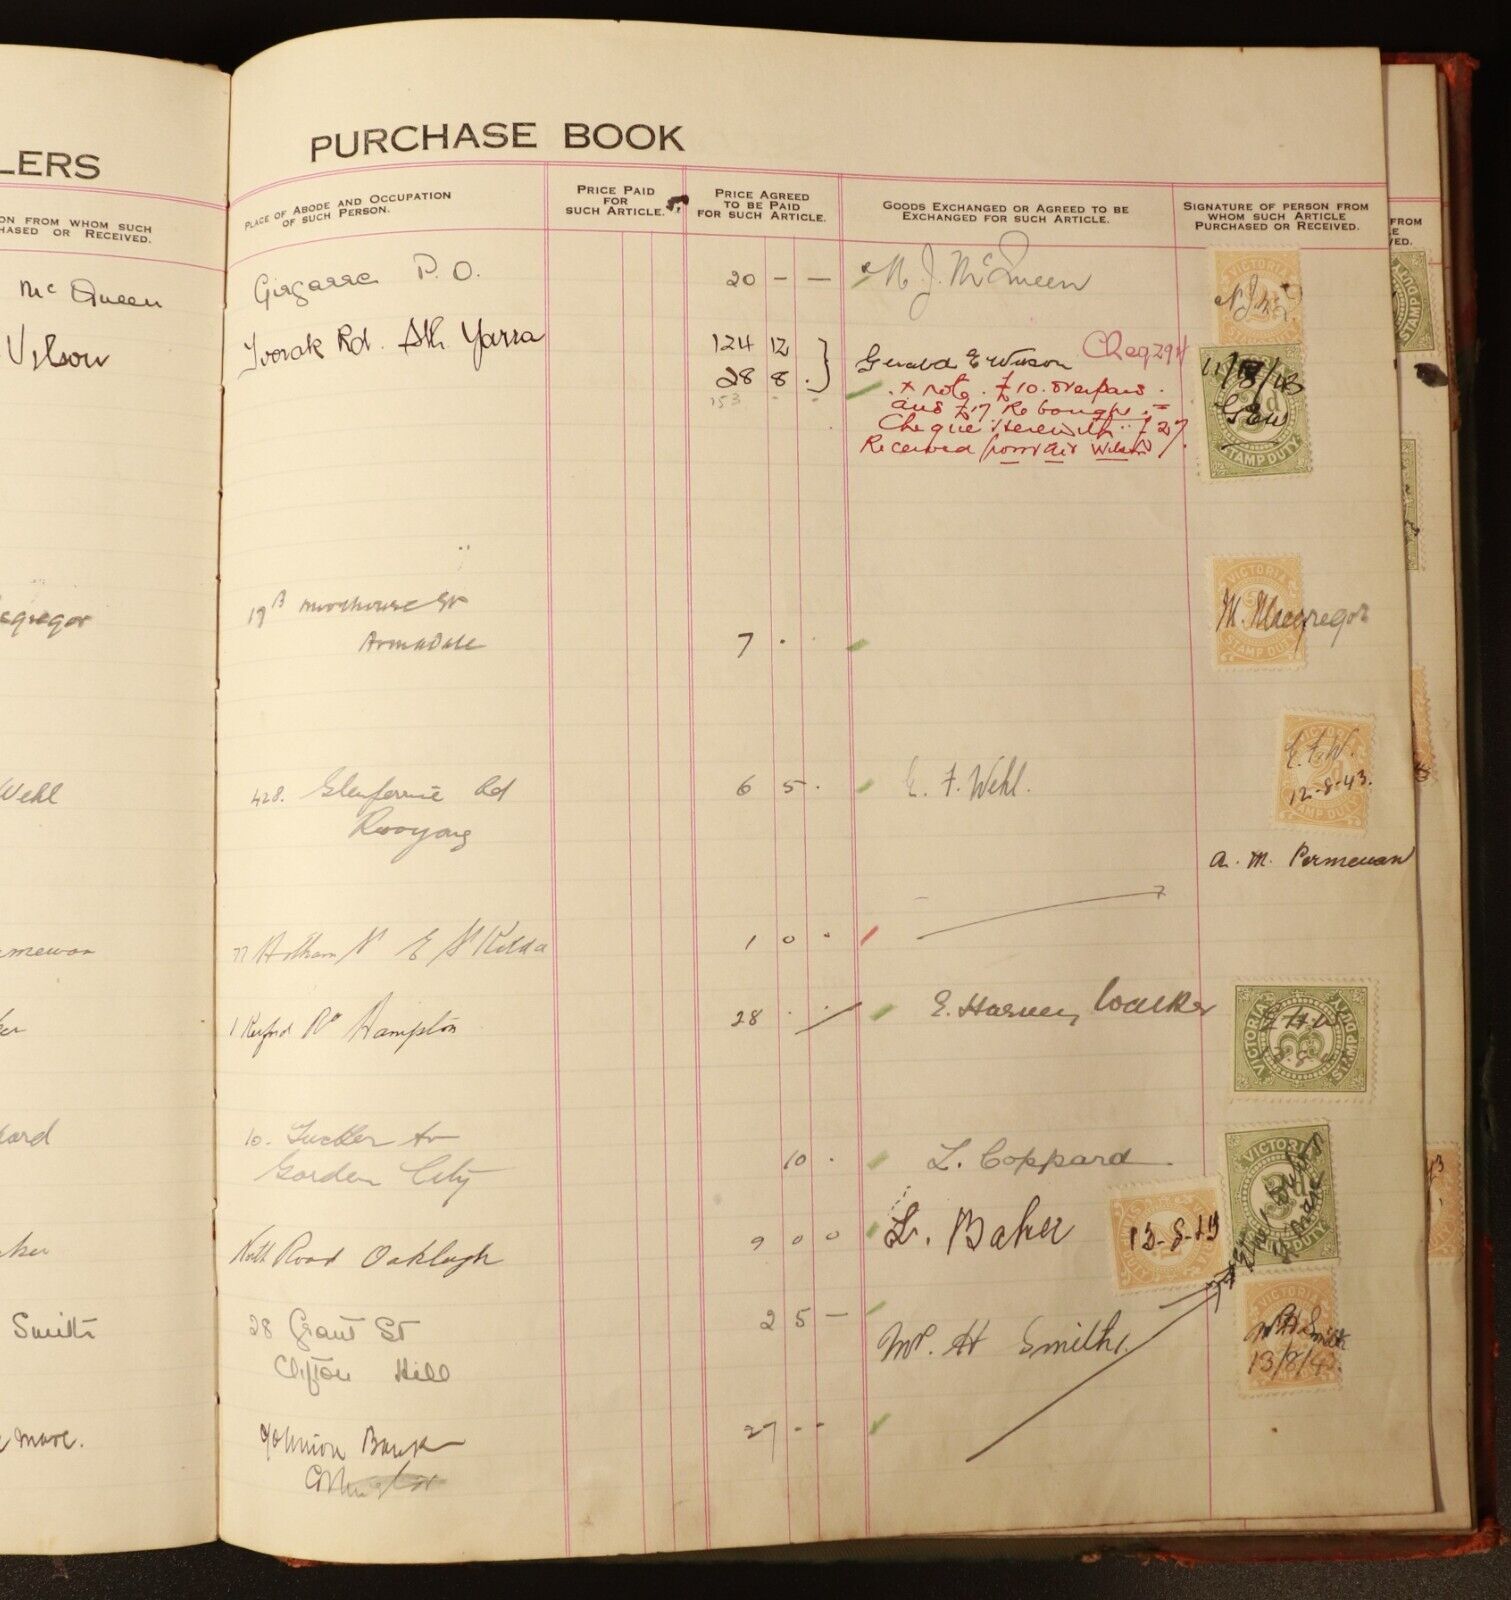 LERS
PURCHASE BOOK
ON FROM WHOM SUCH
HASED OR RECEIVED.
PLACE OF ABODE AND OCCUPATION
OF SUCH PERSON.
PRICE PAID
FOR
SUCH ARTICLE.
PRICE AGREED
TO BE PAID
FOR SUCH ARTICLE.
GOODS EXCHANGED OR AGREED TO BE
EXCHANGED FOR SUCH ARTICLE.
SIGNATURE OF PERSON FROM
WHOM SUCH ARTICLE
PURCHASED OR RECEIVED.
FROM
E
VED.
Mc Queen
Girgarre P.O.
20 — —
N. J. McQueen
VICTORIA
Wilson
Toorak Rd. Sth Yarra
124 12
28 8 .
153 - -
Gerald E Wilson
Cheq 294
x note . £10. overpaid .
and £17 Re bought . =
Cheque Herewith £27
Received from Mr Wilson
11/8/43
GEW
STAMP DUTY
egregor
19B Moorhouse St
Armadale
7 . .
VICTORIA
M. Macgregor
STAMP DUTY
Wehl
428. Glenferrie Rd
Kooyong
6 5 .
E. F. Wehl.
E. F. W.
12-8-43.
STAMP DUTY
A. M. Permewan
mewan
77 Hotham St E St Kilda
1 0 .
ker
1 Rd Hampton
28 . .
E. Harvey Walker
VICTORIA
STAMP DUTY
E H W
3
pard
10. Tucker Av
Garden City
10 .
L. Coppard
VICTORIA
3d
aker
North Road Oakleigh
9 0 0
L. Baker
13-8-43
Smith
28 Grant St
Clifton Hill
2 5 —
Mr. H Smith.
VICTORIA
Mr H Smith
13/8/43.
more.
Bank
27 - -